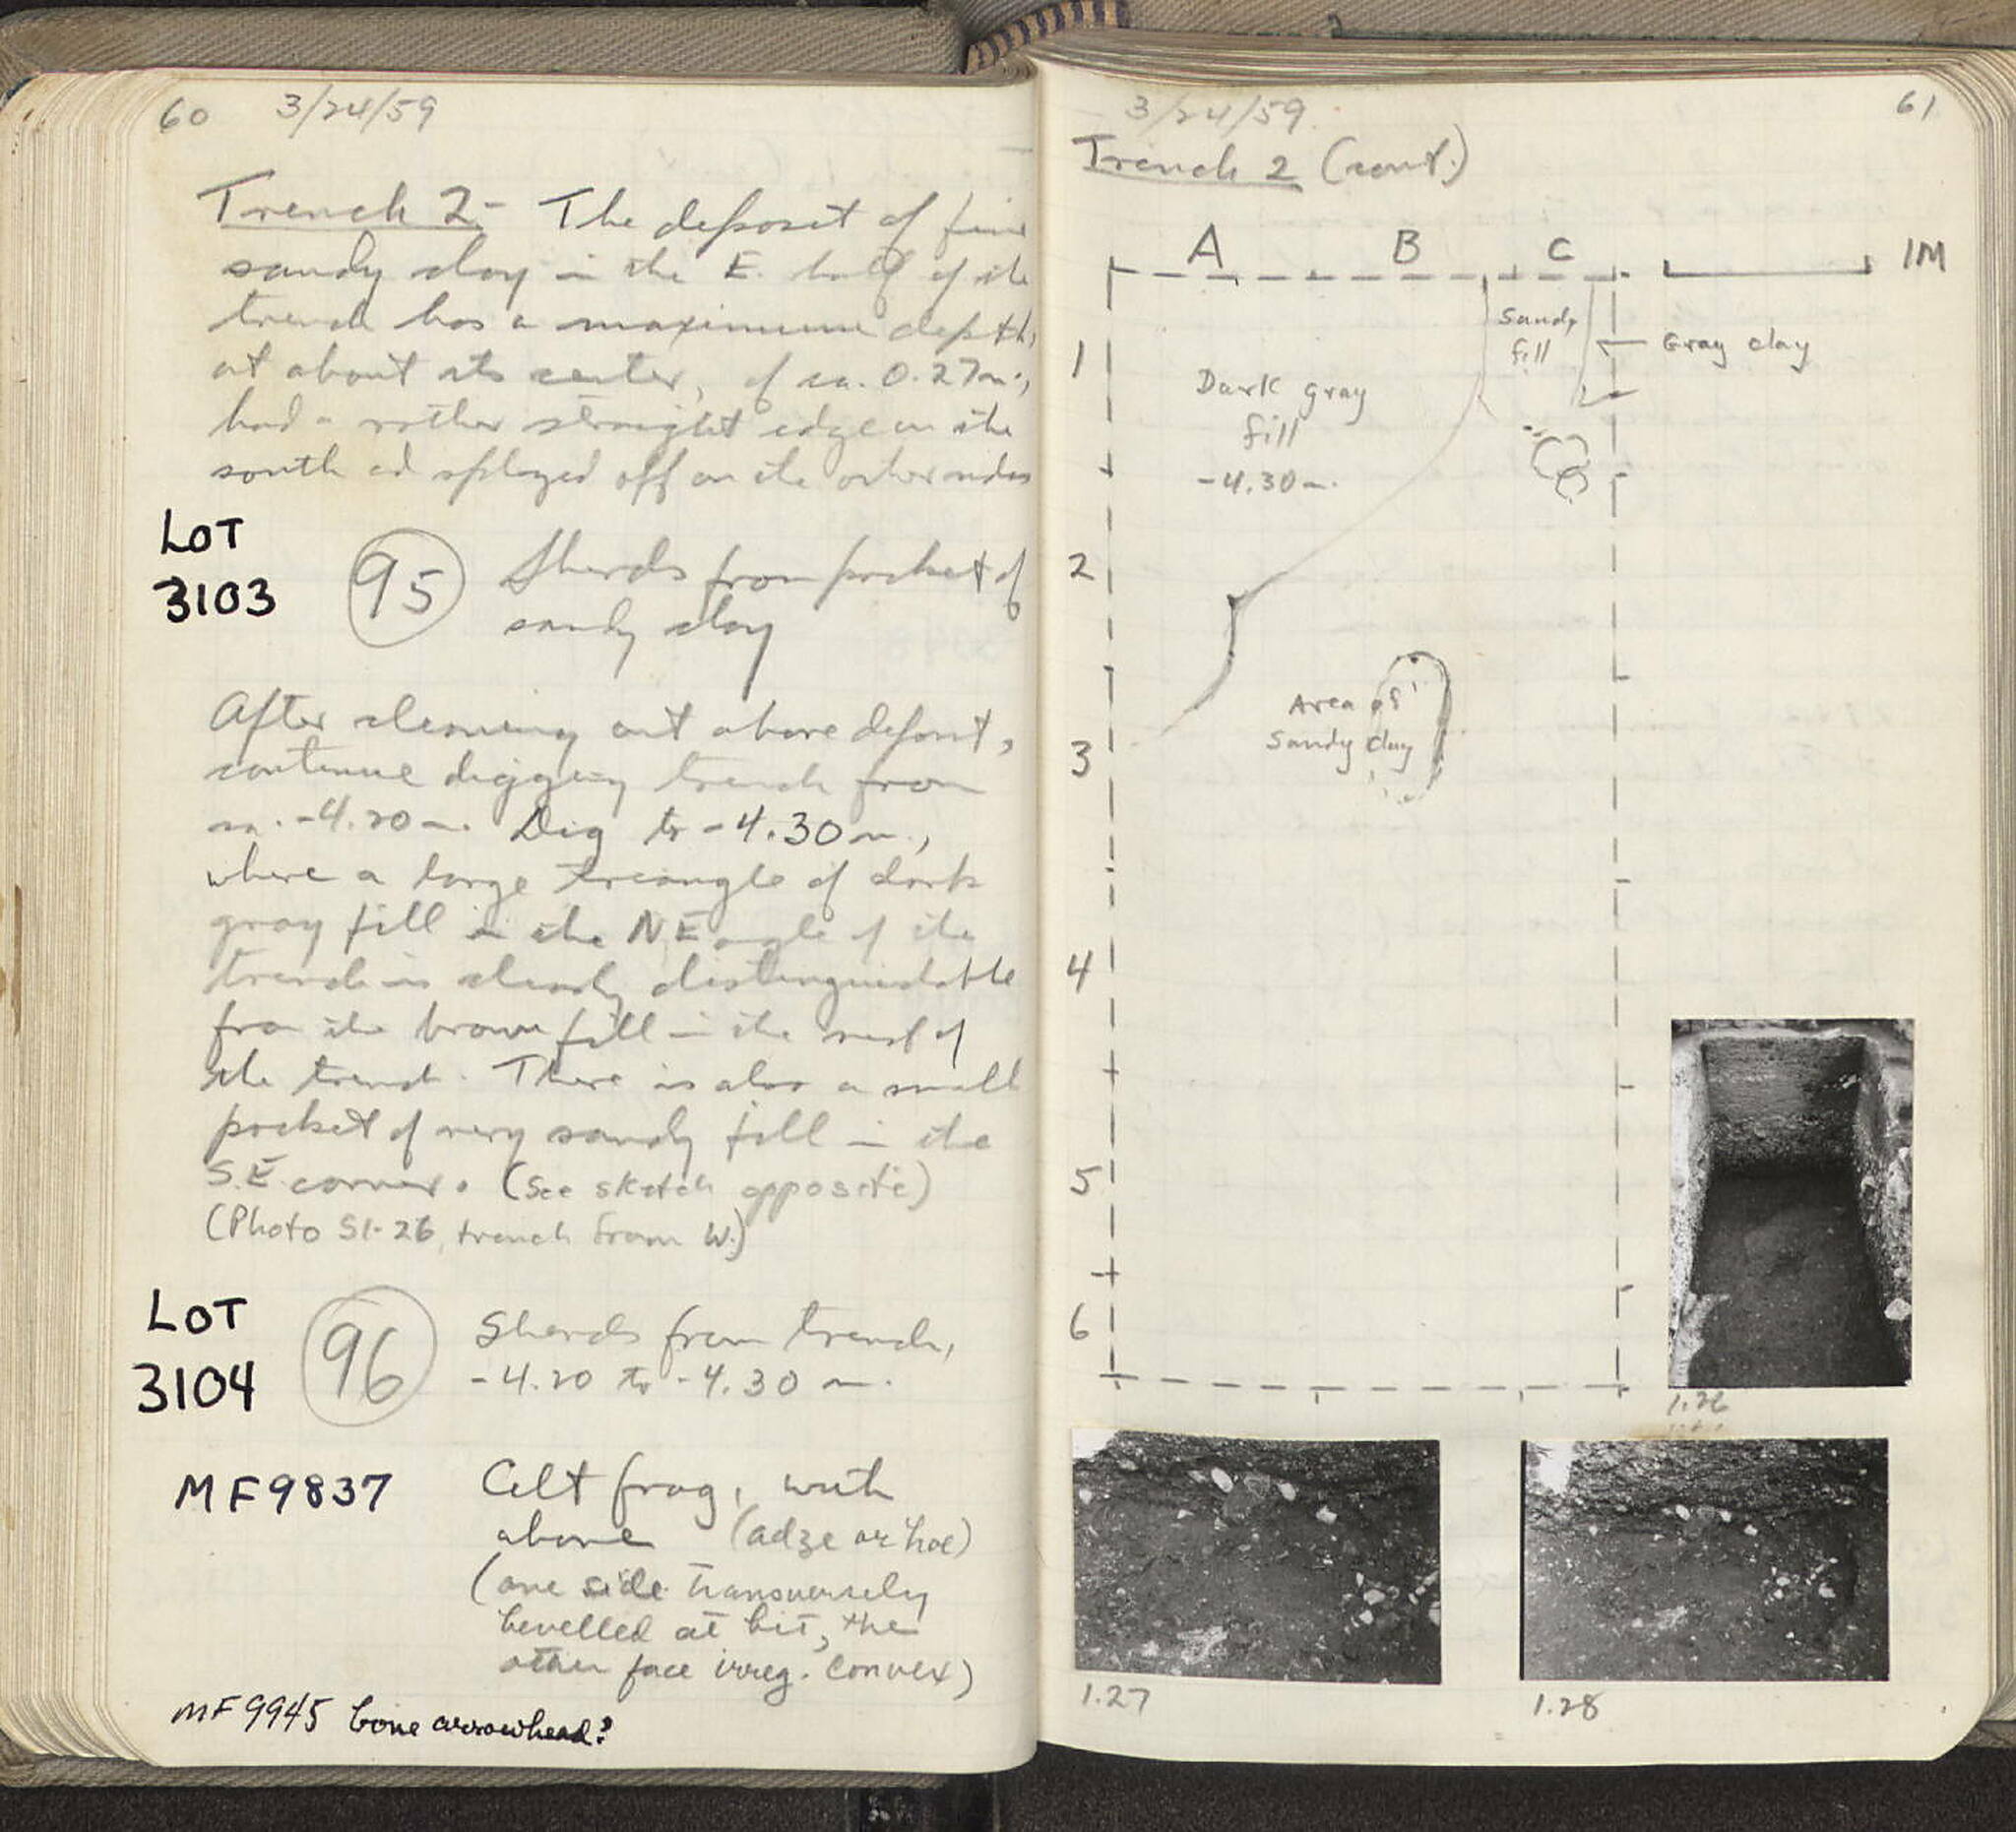 60 3/24/59
Trench 2 - The deposit of fine
sandy clay in the E. half of the
trench has a maximum depth,
at about its center, of ca. 0.27m.,
had a rather straight edge on the
south and splayed off on the other sides
LOT
3103
95 Sherds from pocket of
sandy clay
After cleaning out above deposit,
continue digging trench from
ca. -4.20m. Dig to -4.30m.,
where a large triangle of dark
gray fill in the NE angle of the
trench is clearly distinguishable
from the brown fill in the rest of
the trench. There is also a small
pocket of very sandy fill in the
S.E. corner. (See sketch opposite)
(Photo S1-26, trench from W.)
LOT
3104
96 Sherds from trench,
-4.20 to -4.30 m.
MF9837 Celt frag, with
above (adze or hoe)
(one side transversely
bevelled at bit, the
other face irreg. convex)
MF9945 bone arrowhead?
3/24/59. 61
Trench 2 (cont.)
A B C 1M
Sandy
fill
Gray clay
1
Dark gray
fill
-4.30m.
2
Area of
Sandy clay
3
4
5
6
1.26
1.27 1.28